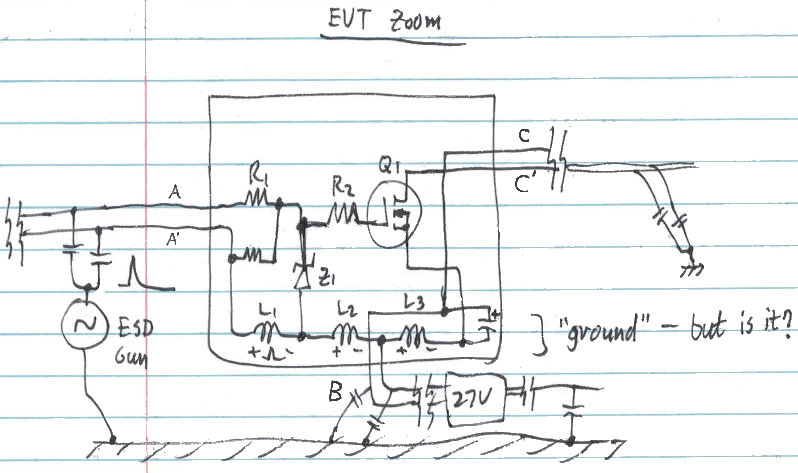 EVT Zoom
C
Q1
C'
R1
R2
A
A'
Z1
L1
L2
L3
+
+ -
+ -
+ -
ESD
Gun
} "ground" - but is it?
B
27V